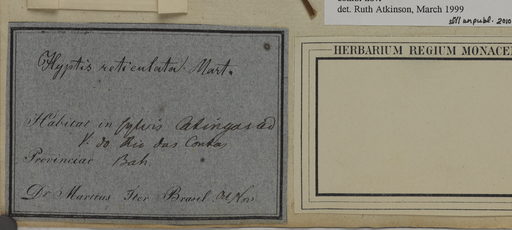 det. Ruth Atkinson, March 1999
still unpubl. 2010
HERBARIUM REGIUM MONACEN
Hyptis reticulata Mart.
Habitat in sylvis Catingas ad
V. do Rio das Contas
Provinciae Bah.
Dr. Martius Iter Brasil. Oct. Nov.